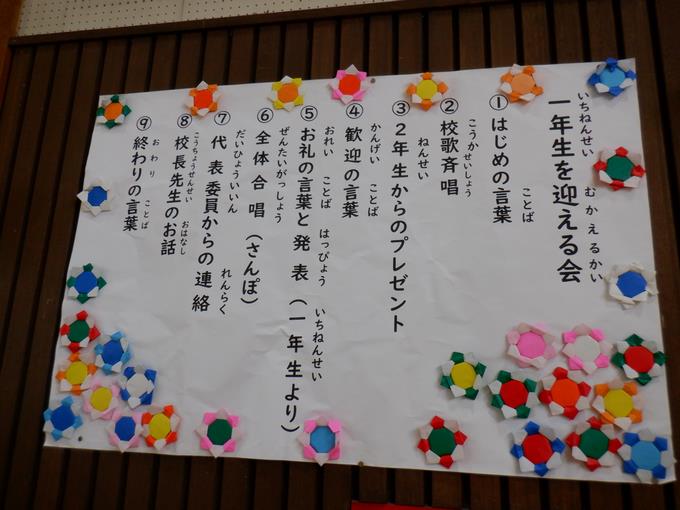 一年生を迎える会
いちねんせい むかえるかい
①はじめの言葉
ことば
②校歌斉唱
こうかせいしょう
③２年生からのプレゼント
ねんせい
④歓迎の言葉
かんげい ことば
⑤お礼の言葉と発表（一年生より）
おれい ことば はっぴょう いちねんせい
⑥全体合唱（さんぽ）
ぜんたいがっしょう
⑦代表委員からの連絡
だいひょういいん れんらく
⑧校長先生のお話
こうちょうせんせい おはなし
⑨終わりの言葉
おわり ことば